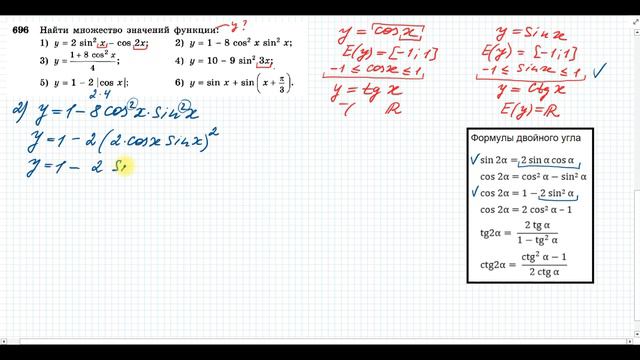 696 Найти множество значений функции: y?
1) y = 2 sin² x - cos 2x; 2) y = 1 - 8 cos² x sin² x;
3) y = (1 + 8 cos² x)/4; 4) y = 10 - 9 sin² 3x;
5) y = 1 - 2 |cos x|; 6) y = sin x + sin (x + π/3).
2·4
2) y = 1 - 8 cos² x · sin² x
y = 1 - 2 (2 · cosx sinx)²
y = 1 - 2 si
y = cosx
E(y) = [-1; 1]
-1 ≤ cosx ≤ 1
y = tg x
ℝ
y = sinx
E(y) = [-1; 1]
-1 ≤ sinx ≤ 1 ✓
y = ctg x
E(y) = ℝ
Формулы двойного угла
✓ sin 2α = 2 sin α cos α
cos 2α = cos² α – sin² α
✓ cos 2α = 1 - 2 sin² α
cos 2α = 2 cos² α – 1
tg2α = 2 tg α / (1 − tg² α)
ctg2α = (ctg² α − 1) / (2 ctg α)